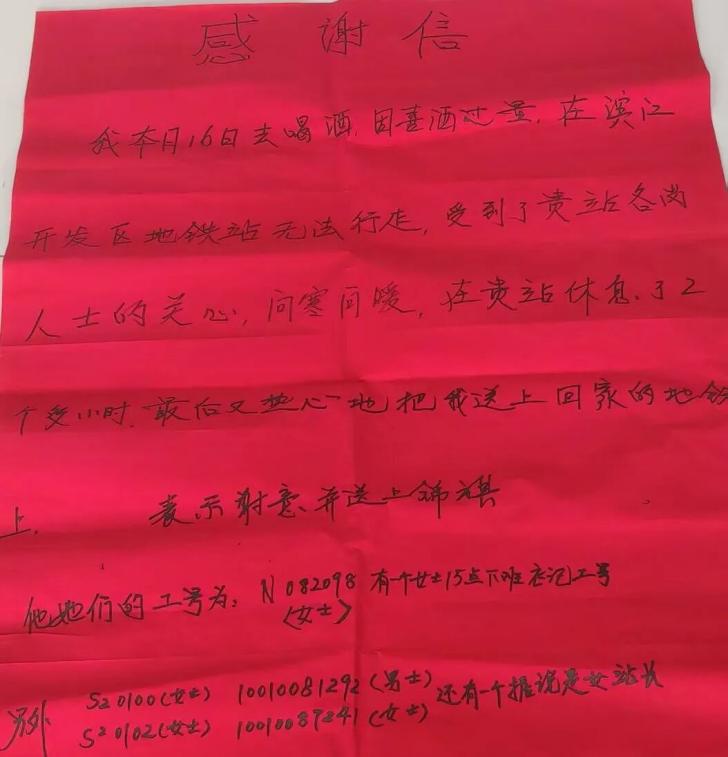 感谢信
我本月16日去喝酒,因喜酒过量,在滨江
开发区地铁站无法行走,受到了贵站各岗
人士的关心,问寒问暖,在贵站休息了2
个多小时.最后又热心地把我送上回家的地铁
上. 表示谢意并送上锦旗
他她们的工号为: N082098 有一个女士15点下班忘记工号
(女士)
另外 S20100(女士) 10010081292(男士) 还有一个据说是女站长
S20102(女士) 10010087241(女士)